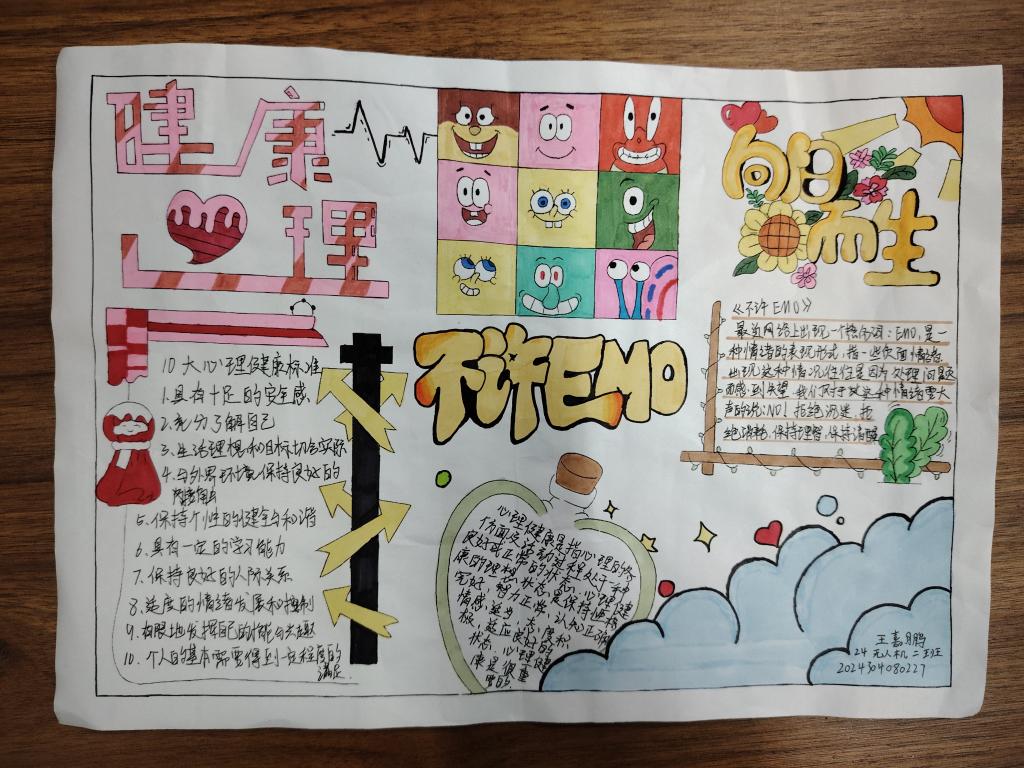 健康
心理
向阳
而生
不许EMO
10大心理健康标准
1.具有十足的安全感
2.充分了解自己
3.生活理想和目标切合实际
4.与外界环境保持良好的
接触
5.保持个性的健全与和谐
6.具有一定的学习能力
7.保持良好的人际关系
8.适度的情绪发展和控制
9.有限地发挥自己的才能与兴趣
10.个人的基本需要得到一定程度的
满足.
《不许EMO》
最近网络上出现一个词:EMO,是一
种情绪的表现形式,指一些负面情绪
出现这种情况往往是因为处理问题
而感到失望,我们对于这种情绪要大
声的说:NO!拒绝
绝 保持理智,保持清醒
心理健康是指心理的各个
方面及活动过程处于一种
良好或正常的状态。心理健
康的理想状态是保持性格
完好、智力正常、认知正确、
情感适当、态度积
极、适应良好的
状态,心理健
康是很重
要的.
王嘉鹏
24无人机二班
2024304080227